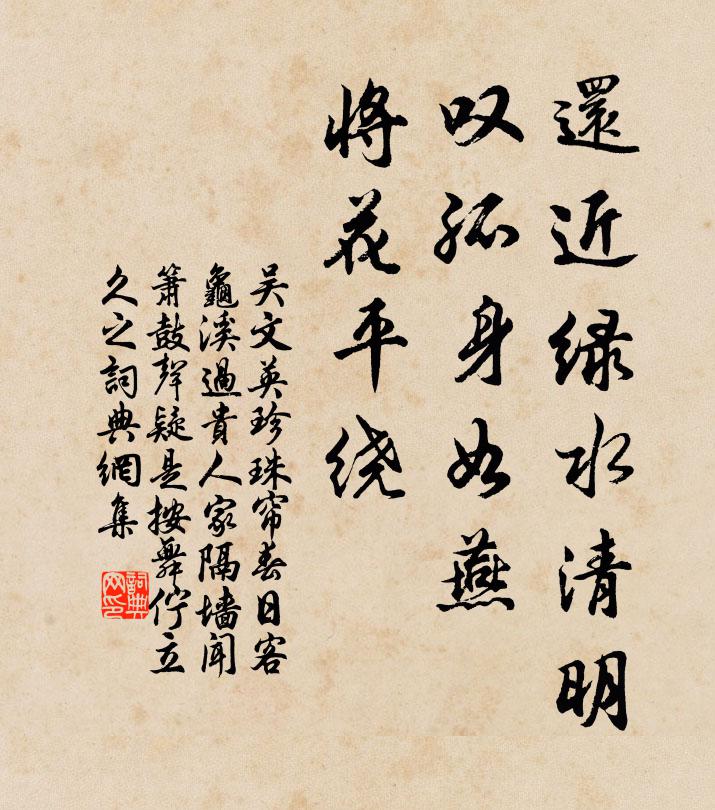 還近绿水清明
叹孤身如燕
将花平绕
吴文英珍珠帘春日客
龜溪過貴人家隔墻闻
箫鼓聲疑是按舞伫立
久之詞典網集
詞典网印